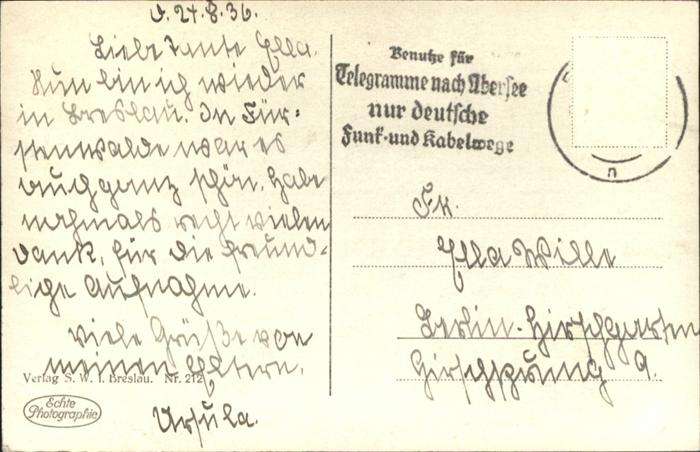 d. 24.8.36.
Liebe Tante Ella.
Nun bin ich wieder
in Breslau. In Für-
stenwalde war es
auch ganz schön. Habe
nochmals recht vielen
Dank, für die freund-
liche Aufnahme.
Viele Grüße von
meinen Eltern.
Ursula.
Verlag S. W. I. Breslau. Nr. 212
Echte
Photographie
Benutze für
Telegramme nach Übersee
nur deutsche
Funk- und Kabelwege
n
Fr.
Ella Wille
Berlin-Hirschgarten
Hirschsprung 9.